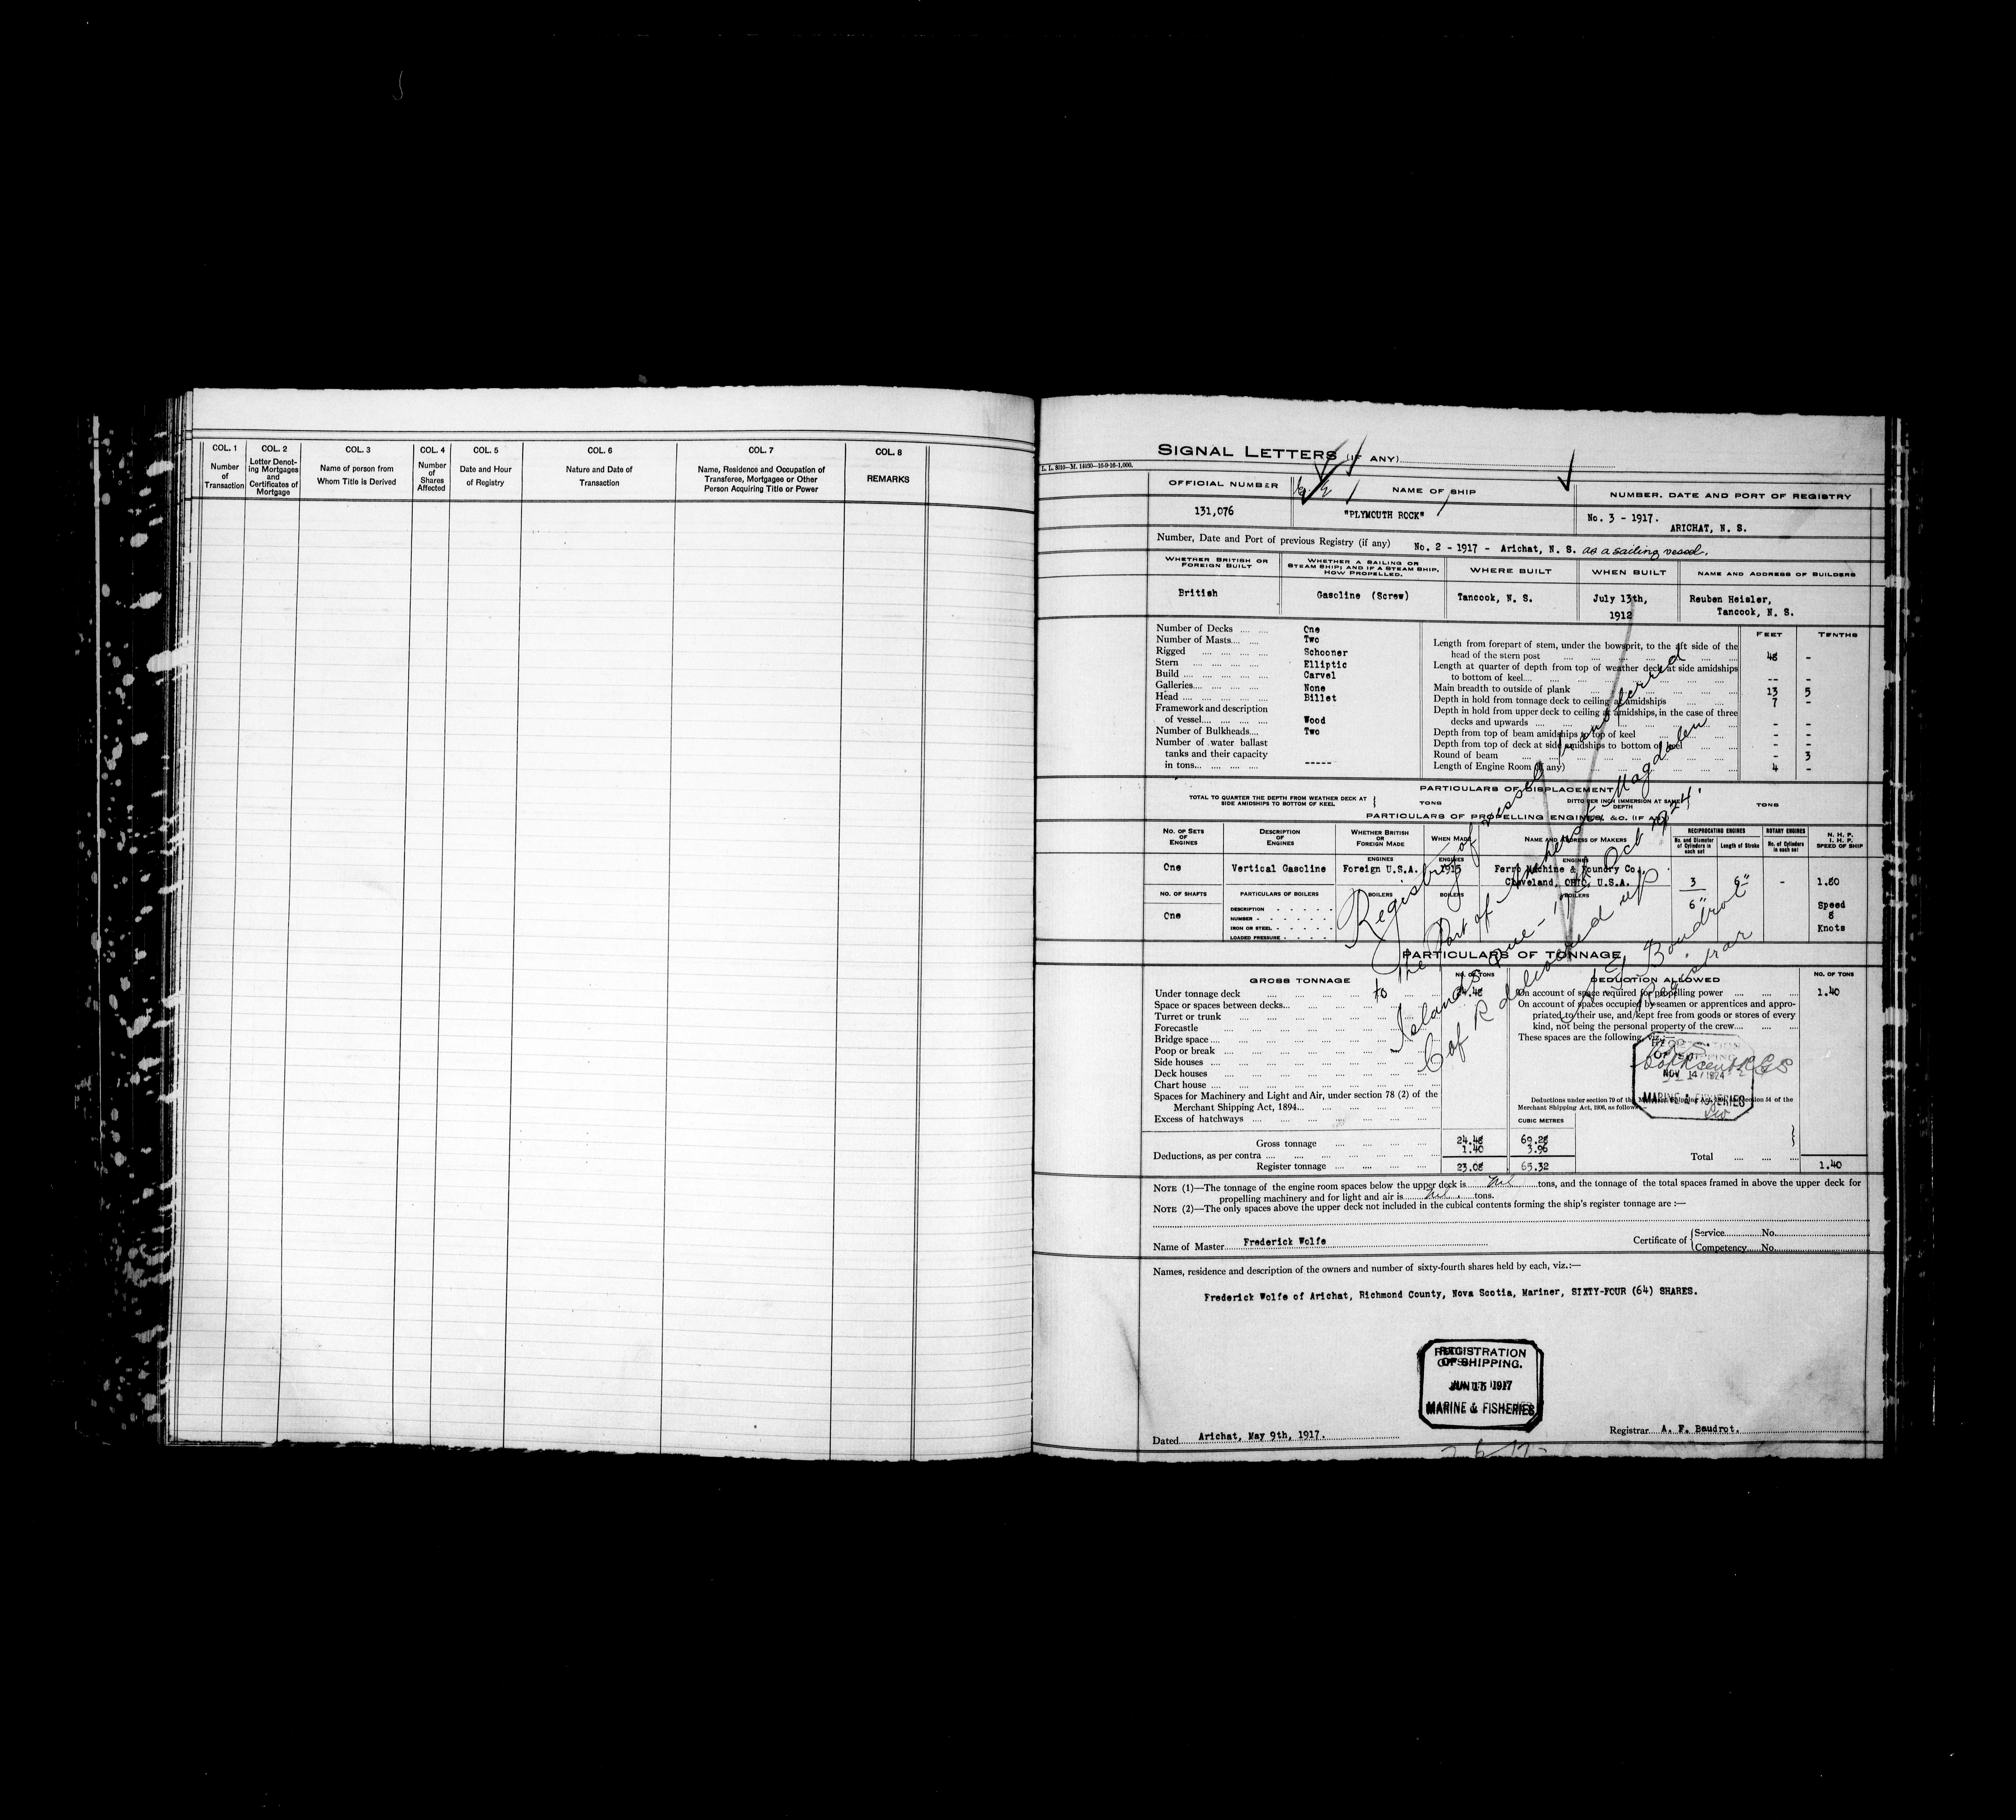 COL. 1 COL. 2 COL. 3 COL. 4 COL. 5 COL. 6 COL. 7 COL. 8
Number of Transaction
Letter Denoting Mortgages and Certificates of Mortgage
Name of person from Whom Title is Derived
Number of Shares Affected
Date and Hour of Registry
Nature and Date of Transaction
Name, Residence and Occupation of Transferee, Mortgagee or Other Person Acquiring Title or Power
REMARKS
SIGNAL LETTERS (IF ANY)
OFFICIAL NUMBER NAME OF SHIP NUMBER, DATE AND PORT OF REGISTRY
131,076 "PLYMOUTH ROCK" No. 3 - 1917.
ARICHAT, N. S.
Number, Date and Port of previous Registry (if any) No. 2 - 1917 - Arichat, N. S. as a sailing vessel.
WHETHER BRITISH OR FOREIGN BUILT
WHETHER A SAILING OR STEAM SHIP; AND IF A STEAM SHIP, HOW PROPELLED.
WHERE BUILT WHEN BUILT NAME AND ADDRESS OF BUILDERS
British Gasoline (Screw) Tancook, N. S. July 13th, 1912 Reuben Heisler,
Tancook, N. S.
FEET TENTHS
Number of Decks One
Number of Masts Two
Rigged Schooner
Stern Elliptic
Build Carvel
Galleries None
Head Billet
Framework and description
of vessel Wood
Number of Bulkheads Two
Number of water ballast
tanks and their capacity
in tons -----
Length from forepart of stem, under the bowsprit, to the aft side of the
head of the stern post 48 -
Length at quarter of depth from top of weather deck at side amidships
to bottom of keel -- -
Main breadth to outside of plank 13 5
Depth in hold from tonnage deck to ceiling at amidships 7 -
Depth in hold from upper deck to ceiling at amidships, in the case of three
decks and upwards - -
Depth from top of beam amidships to top of keel - -
Depth from top of deck at side amidships to bottom of keel - -
Round of beam - 3
Length of Engine Room (if any) 4 -
PARTICULARS OF DISPLACEMENT
TOTAL TO QUARTER THE DEPTH FROM WEATHER DECK AT SIDE AMIDSHIPS TO BOTTOM OF KEEL } TONS
DITTO PER INCH IMMERSION AT SAME DEPTH TONS
PARTICULARS OF PROPELLING ENGINES, &C. (IF ANY)
No. of Sets of Engines
Description of Engines
Whether British or Foreign Made
When Made
Name and Address of Makers
RECIPROCATING ENGINES
No. and Diameter of Cylinders in each set
Length of Stroke
ROTARY ENGINES
No. of Cylinders in each set
N. H. P.
I. H. P.
SPEED OF SHIP
ENGINES ENGINES ENGINES
One Vertical Gasoline Foreign U.S.A. 1915 Ferro Machine & Foundry Co.,
Cleveland, OHIO, U.S.A. 3 6" - 1.80
NO. OF SHAFTS PARTICULARS OF BOILERS BOILERS BOILERS BOILERS
6" Speed
One 8
DESCRIPTION
NUMBER
IRON OR STEEL Knots
LOADED PRESSURE
PARTICULARS OF TONNAGE
GROSS TONNAGE NO. OF TONS DEDUCTION ALLOWED NO. OF TONS
Under tonnage deck 24.48
Space or spaces between decks
Turret or trunk
Forecastle
Bridge space
Poop or break
Side houses
Deck houses
Chart house
Spaces for Machinery and Light and Air, under section 78 (2) of the
Merchant Shipping Act, 1894
Excess of hatchways
On account of space required for propelling power 1.40
On account of spaces occupied by seamen or apprentices and appro-
priated to their use, and kept free from goods or stores of every
kind, not being the personal property of the crew
These spaces are the following, viz.:—
CUBIC METRES
Gross tonnage 24.48 69.28
Deductions, as per contra 1.40 3.96
Register tonnage 23.08 65.32
Total 1.40
Registry of vessel transferred
to the Port of Amherst Magdalen
Islands Que - 16 Oct 1924
C of R delivered up
A F Boudrot
Registrar
NOV 14 1924
MARINE & FISHERIES
NOTE (1)—The tonnage of the engine room spaces below the upper deck is nil tons, and the tonnage of the total spaces framed in above the upper deck for
propelling machinery and for light and air is nil tons.
NOTE (2)—The only spaces above the upper deck not included in the cubical contents forming the ship's register tonnage are :—
Name of Master Frederick Wolfe Certificate of { Service No.
Competency No.
Names, residence and description of the owners and number of sixty-fourth shares held by each, viz.:—
Frederick Wolfe of Arichat, Richmond County, Nova Scotia, Mariner, SIXTY-FOUR (64) SHARES.
REGISTRATION
OF SHIPPING.
JUN 15 1917
MARINE & FISHERIES
Dated Arichat, May 9th, 1917. Registrar A. F. Baudrot.